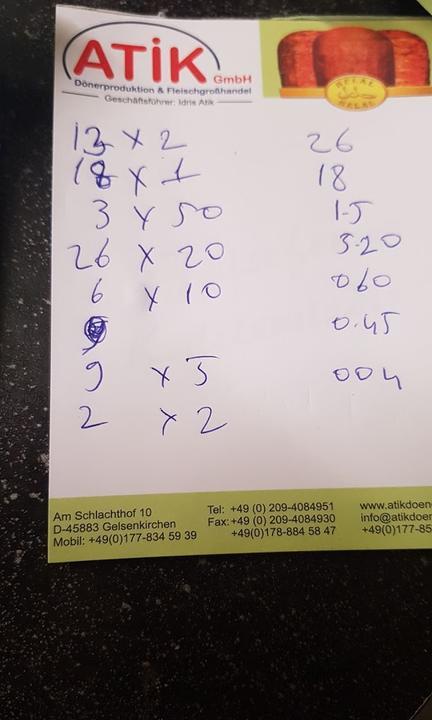 ATİK GmbH
Dönerproduktion & Fleischgroßhandel
Geschäftsführer: Idris Atik
HELAL
HELAL
13 x 2 26
18 x 1 18
3 x 50 1.5
26 x 20 5.20
6 x 10 060
0.45
9 x 5 004
2 x 2
Am Schlachthof 10 Tel: +49 (0) 209-4084951 www.atikdoen
D-45883 Gelsenkirchen Fax: +49 (0) 209-4084930 info@atikdoe
Mobil: +49(0)177-834 59 39 +49(0)178-884 58 47 +49(0)177-85